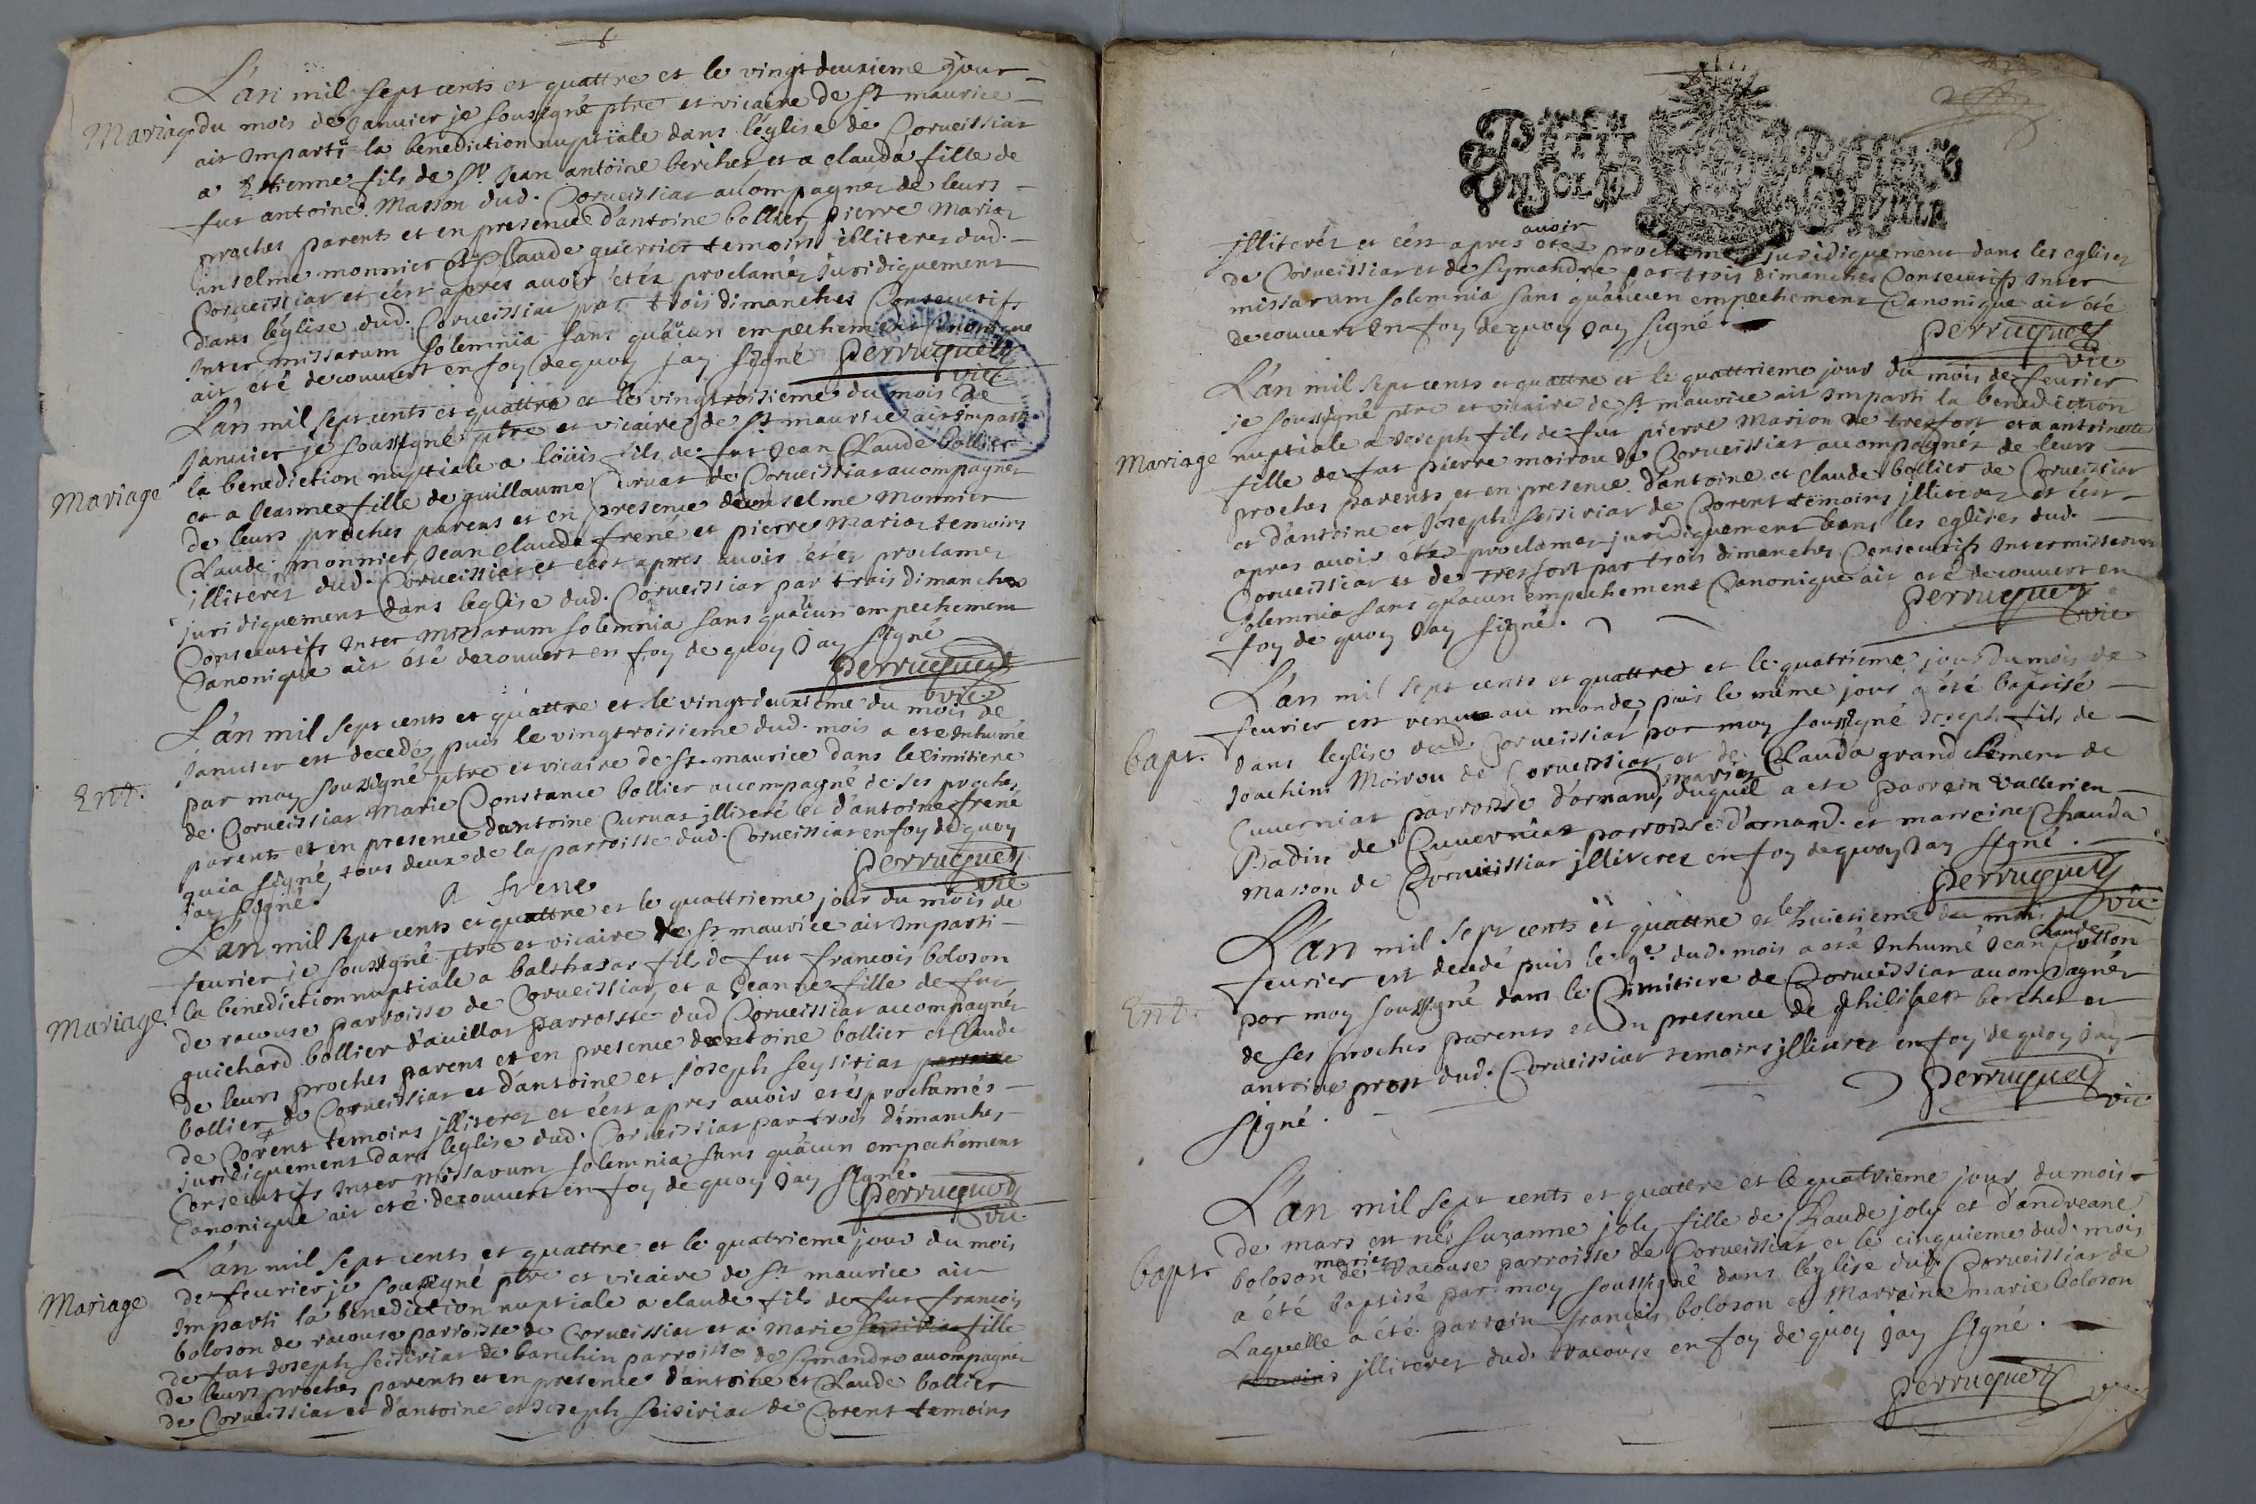 L'an mil sept cents et quattre et le vingt deuxieme jour
Mariage du mois de Januier je sousigné ptre et vicaire de St maurice
ait Imparti la benediction nuptiale dans l'église de Corueissiat
a Etienne fils de Sr Jean antoine berchet et a clauda fille de
fut antoine Masson dud. Corueissiat acompagnéz de leurs
proches parents et en presence d'antoine bollier, pierre Mariaz
anselme monnier et Claude guerrier temoins illiterez dud.
Corueissiat et c'est apres auoir étéz proclaméz Juridiquement
dans l'église dud. Corueissiat par trois dimanches Consecutifs
Inter missarum solemnia sans quaucun empechement canonique
ait été decouuert en foy de quoy jay signé Perruquet
vic
L'an mil sept cents et quattre et le vingtroisieme du mois de
Januier je soussigné ptre et vicaire de St maurice ait imparti
la benediction nuptiale a loüis fils de fut Jean Claude bollier
Mariage
et a Jeanne fille de guillaume Curuat de Corueissiat acompagnez
de leurs proches parens et en presence d'anselme Monnier
Claude monnier, Jean claude frené et pierre Mariaz temoins
illiterez dud. Corueissiat et c'est apres auoir étéz proclamez
juridiquement dans leglise dud. Corueissiat par trois dimanches
Consecutifs Inter missarum solemnia sans quaucun empechement
Canonique ait été decouuert en foy de quoy Jay signé
Perruquet
vic
L'an mil sept cents et quattre et le vingtdeuxieme du mois de
Januier est decedé, puis le vingtroisieme dud. mois a eté Inhumé
Ent.
par moy soussigné ptre et vicaire de St maurice dans le Cimitiere
de Corueissiat Marie Constance bollier acompagné de ses proches
parents et en presence d'antoine Curuat illiteré et d'antoine frené
quia signé, tous deux de la parroisse dud. Corueissiat en foy de quoy
jay signé. A frene Perruquet
vic
L'an mil sept cents et quattre et le quattrieme jour du mois de
feurier je soussigné ptre et vicaire de St maurice ait Imparti
Mariage
la benediction nuptiale a balthasar fils de fut francois boloson
de racouse parroisse de Corueissiat, et a Jeanne fille de fut
guichard bollier d'auillat parroisse dud Corueissiat acompagnéz
de leurs proches parens et en presence d'antoine bollier et Claude
bollier de Corueissiat et d'antoine et joseph seysiriat
de Corent temoins jlliterez et c'est apres auoir etés proclamés
juridiquement dans leglise dud. Corueissiat par trois dimanches
Consecutifs Inter missarum solemnia sans quaucun empechement
Canonique ait eté decouuert en foy de quoy jay signé.
Perruquet
vic
L'an mil sept cents et quattre et le quatrieme jour du mois
Mariage
de feurier je soussigné ptre et vicaire de St maurice ait
Imparti la benediction nuptiale a claude fils de fut francois
boloson de racouse parroisse de Corueissiat et a Marie seisiriat fille
de fut Joseph seisiriat de banchin parroisse de symandre acompagnez
de leurs proches parents et en presence d'antoine et Claude bollier
de Corueissiat et d'antoine et Joseph seisiriat de Corent temoins
PETIT PAPIER
UN SOL LA FEUILLE
jlliterés et c'est apres auoir etez proclamez juridiquement dans les eglises
de Corueissiat et de Symandre par trois dimanches Consecutifs Inter
missarum solemnia sans quaucun empechement Canonique ait eté
decouuert en foy de quoy Jay signé
Perruquet
vic
L'an mil sept cents et quattre et le quattrieme jour du mois de feurier
je soussigné ptre et vicaire de St mauvice ait Imparti la benediction
Marriage
nuptiale a Joseph fils de fut pierre Marion de tresfort et a antoinette
fille de fut pierre moirou de Corueissiat acompagnéz de leurs
proches parents et en presence d'antoine et claude bollier de Corueissiat
et d'antoine et Joseph seisiriat de Corent temoins jlliterez et c'est
apres auoir étéz proclamez juridiquement dans les eglises dud.
Corueissiat et de tresfort par trois dimanches Consecutifs Inter missarum
solemnia sans quaucun empechement Canonique ait eté decouuert en
foy de quoy Jay signé.
Perruquet
vic
L'an mil sept cents et quattre et le quatrieme jour du mois de
feurier est venue au monde, puis le même jour a été baptisé
bapt.
dans leglise dud. Corueissiat par moy soussigné Joseph fils de
Joachim Moirou de Corueissiat, et de Clauda grand Clement de
Cuuerniat parroisse d'ornand, mariez duquel a eté parrein Vallerien
Badin de Cuuerniat parroisse d'arnand. et marreine Clauda
Masson de Corueissiat jlliterez en foy de quoy Jay signé.
Perruquet
vic
L'an mil sept cents et quattre et le huictieme du mois de
feurier est decedé puis le 9e. dud. mois a eté Inhumé Jean Claude
Ent.
par moy soussigné dans le Cimitiere de Corueissiat acompagnéz
de ses proches parents et en presence de philibert berchet et
antoine prost dud. Corueissiat temoins jlliterez en foy de quoy Jay
signé.
Perruquet
vic
L'an mil sept cents et quattre et le quatrieme jour du mois
de mars est née Suzanne joly fille de Claude joly et d'andreane
bapt.
boloson mariez de racouse parroisse de Corueissiat et le cinquieme dud. mois
a été baptisé par moy soussigné dans l'église dud. Corueissiat de
Laquelle a été parrein francois boloson et Marreine marie boloson
temoins jlliterez dud. racouse en foy de quoy jay signé.
Perruquet
vic